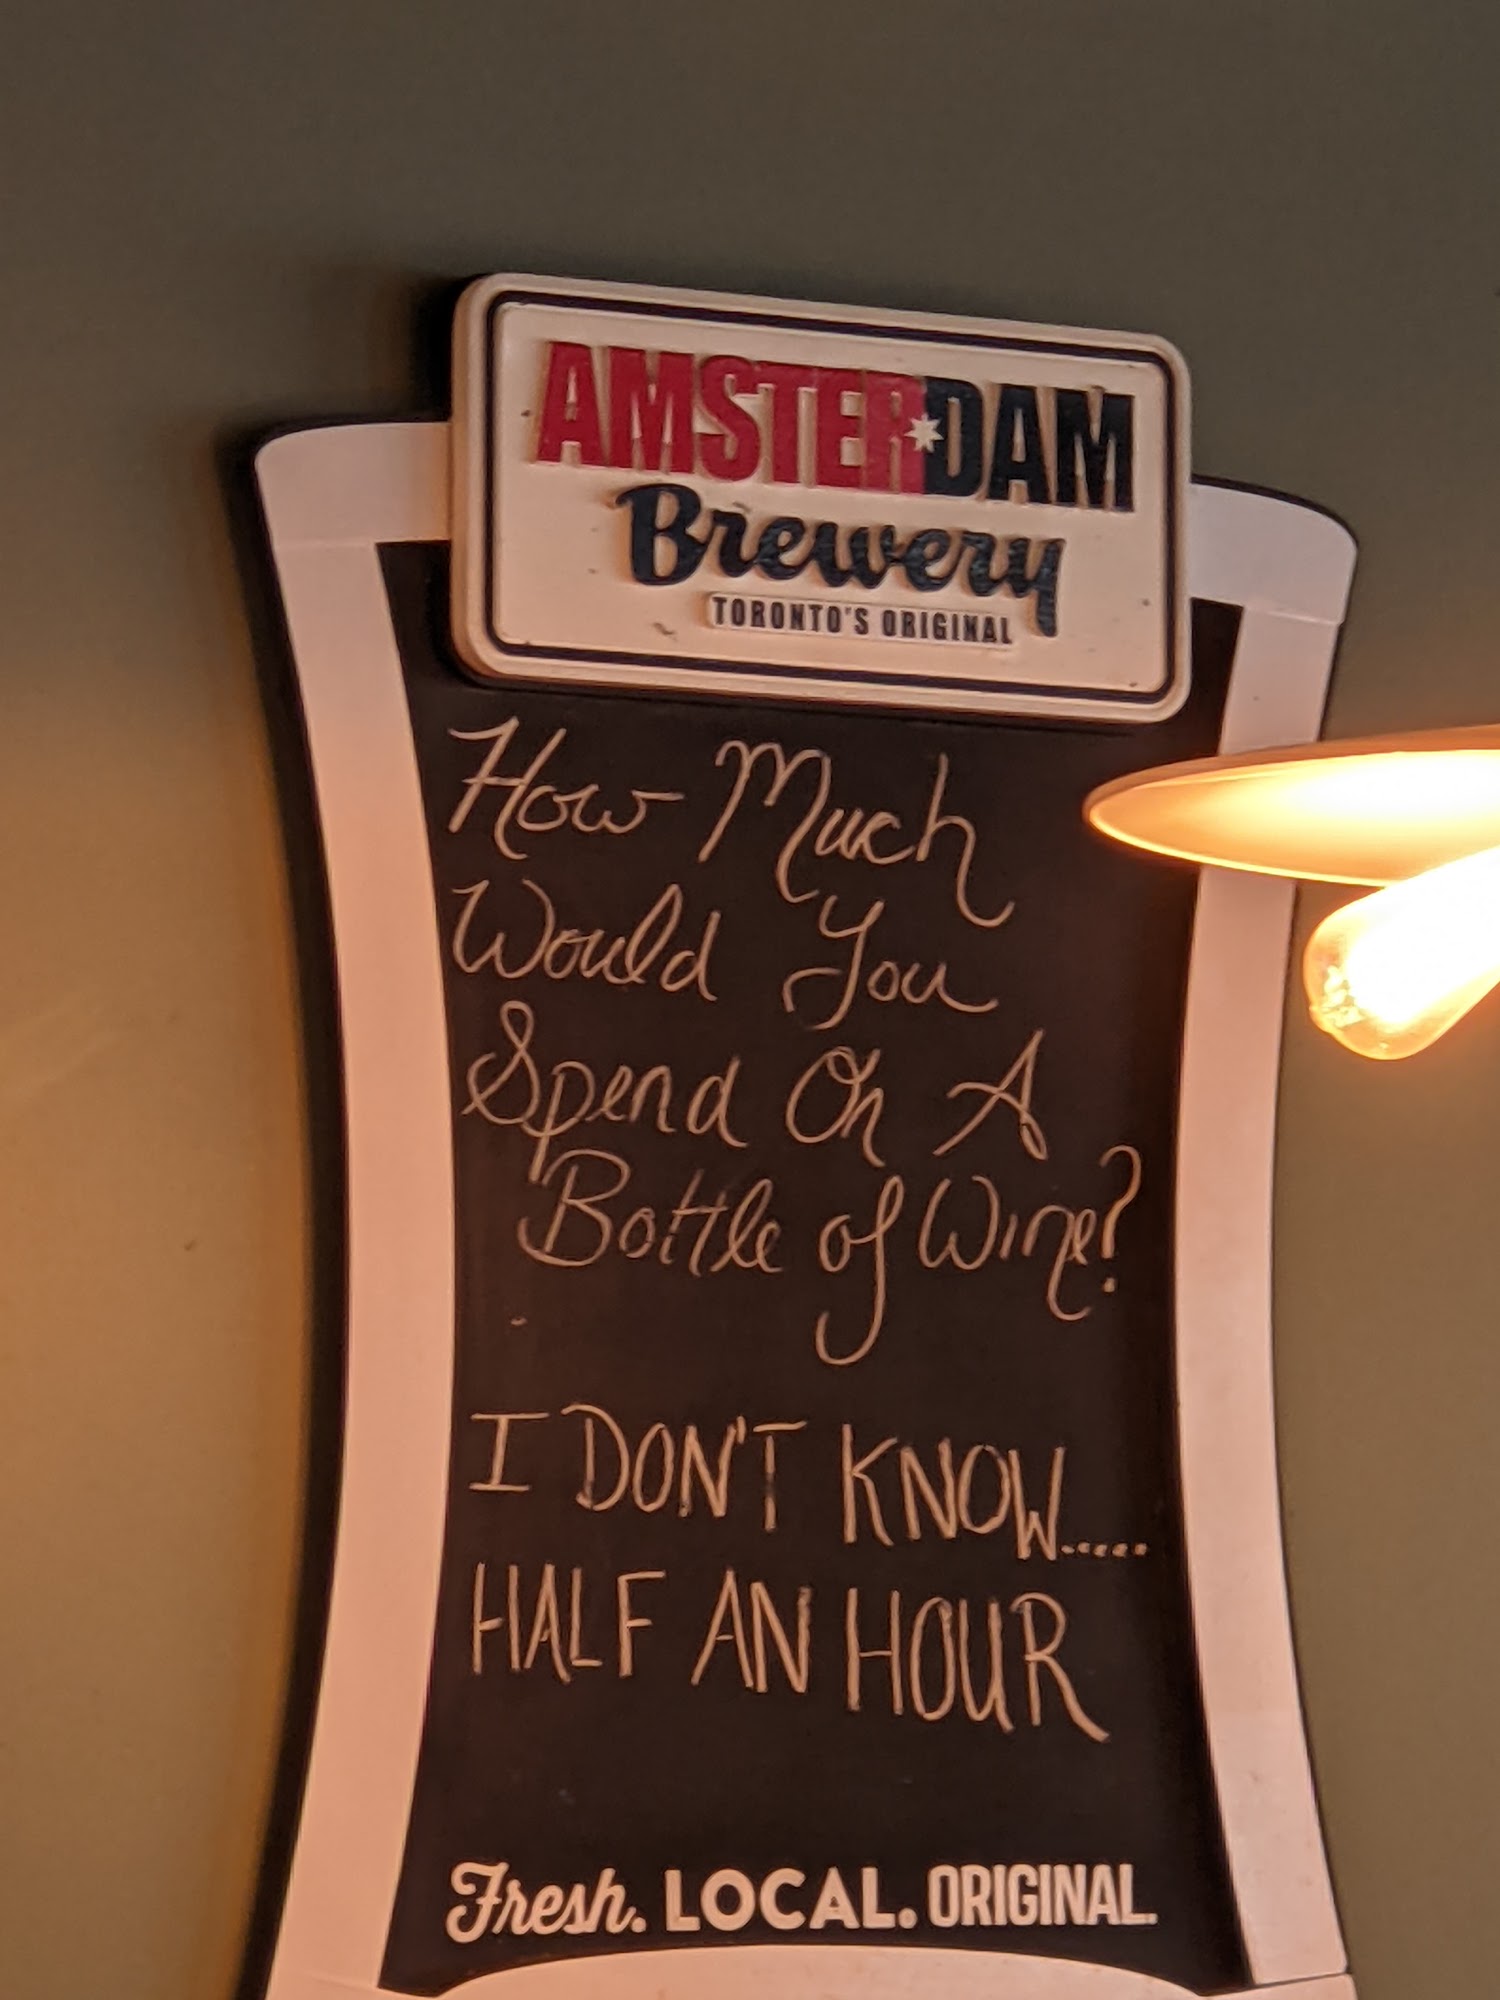 AMSTERDAM
Brewery
TORONTO'S ORIGINAL
How Much
Would You
Spend On A
Bottle of Wine?
I DON'T KNOW.....
HALF AN HOUR
Fresh. LOCAL. ORIGINAL.